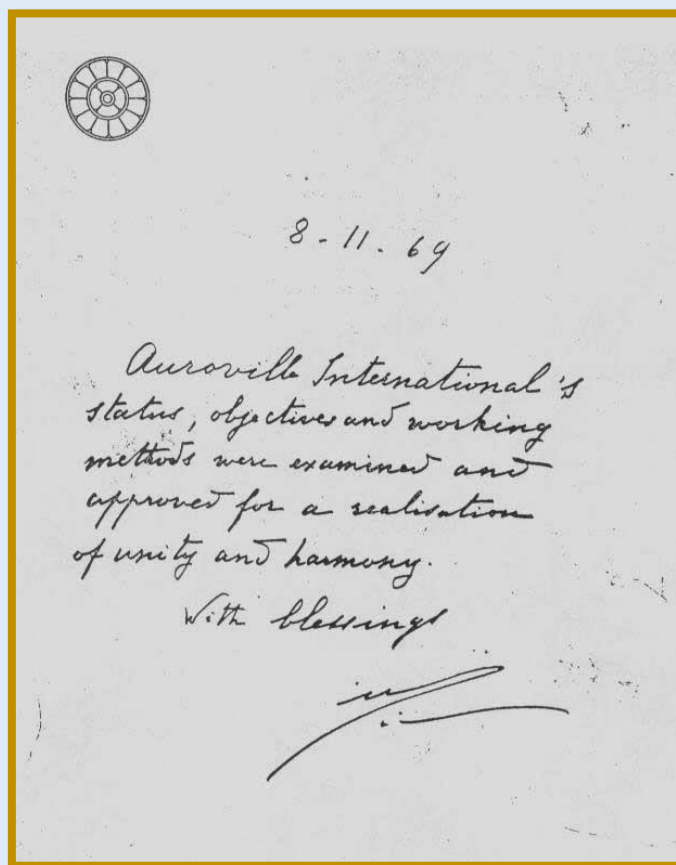 8-11.69
Auroville International's
status, objectives and working
methods were examined and
approved for a realisation
of unity and harmony.
With blessings